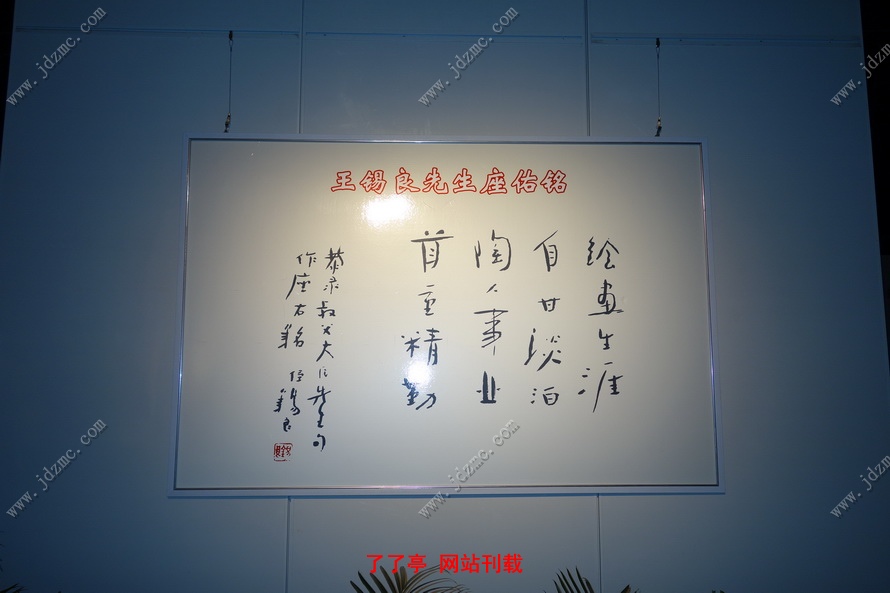 王锡良先生座佑铭
绘画生涯
自甘淡泊
陶人事业
首重精勤
恭录叔父大凡先生句
作座右铭 侄锡良
了了亭 网站刊载
www.jdzmc.com
www.jdzmc.com
www.jdzmc.com
www.jdzmc.com
www.jdzmc.com
www.jdzmc.com